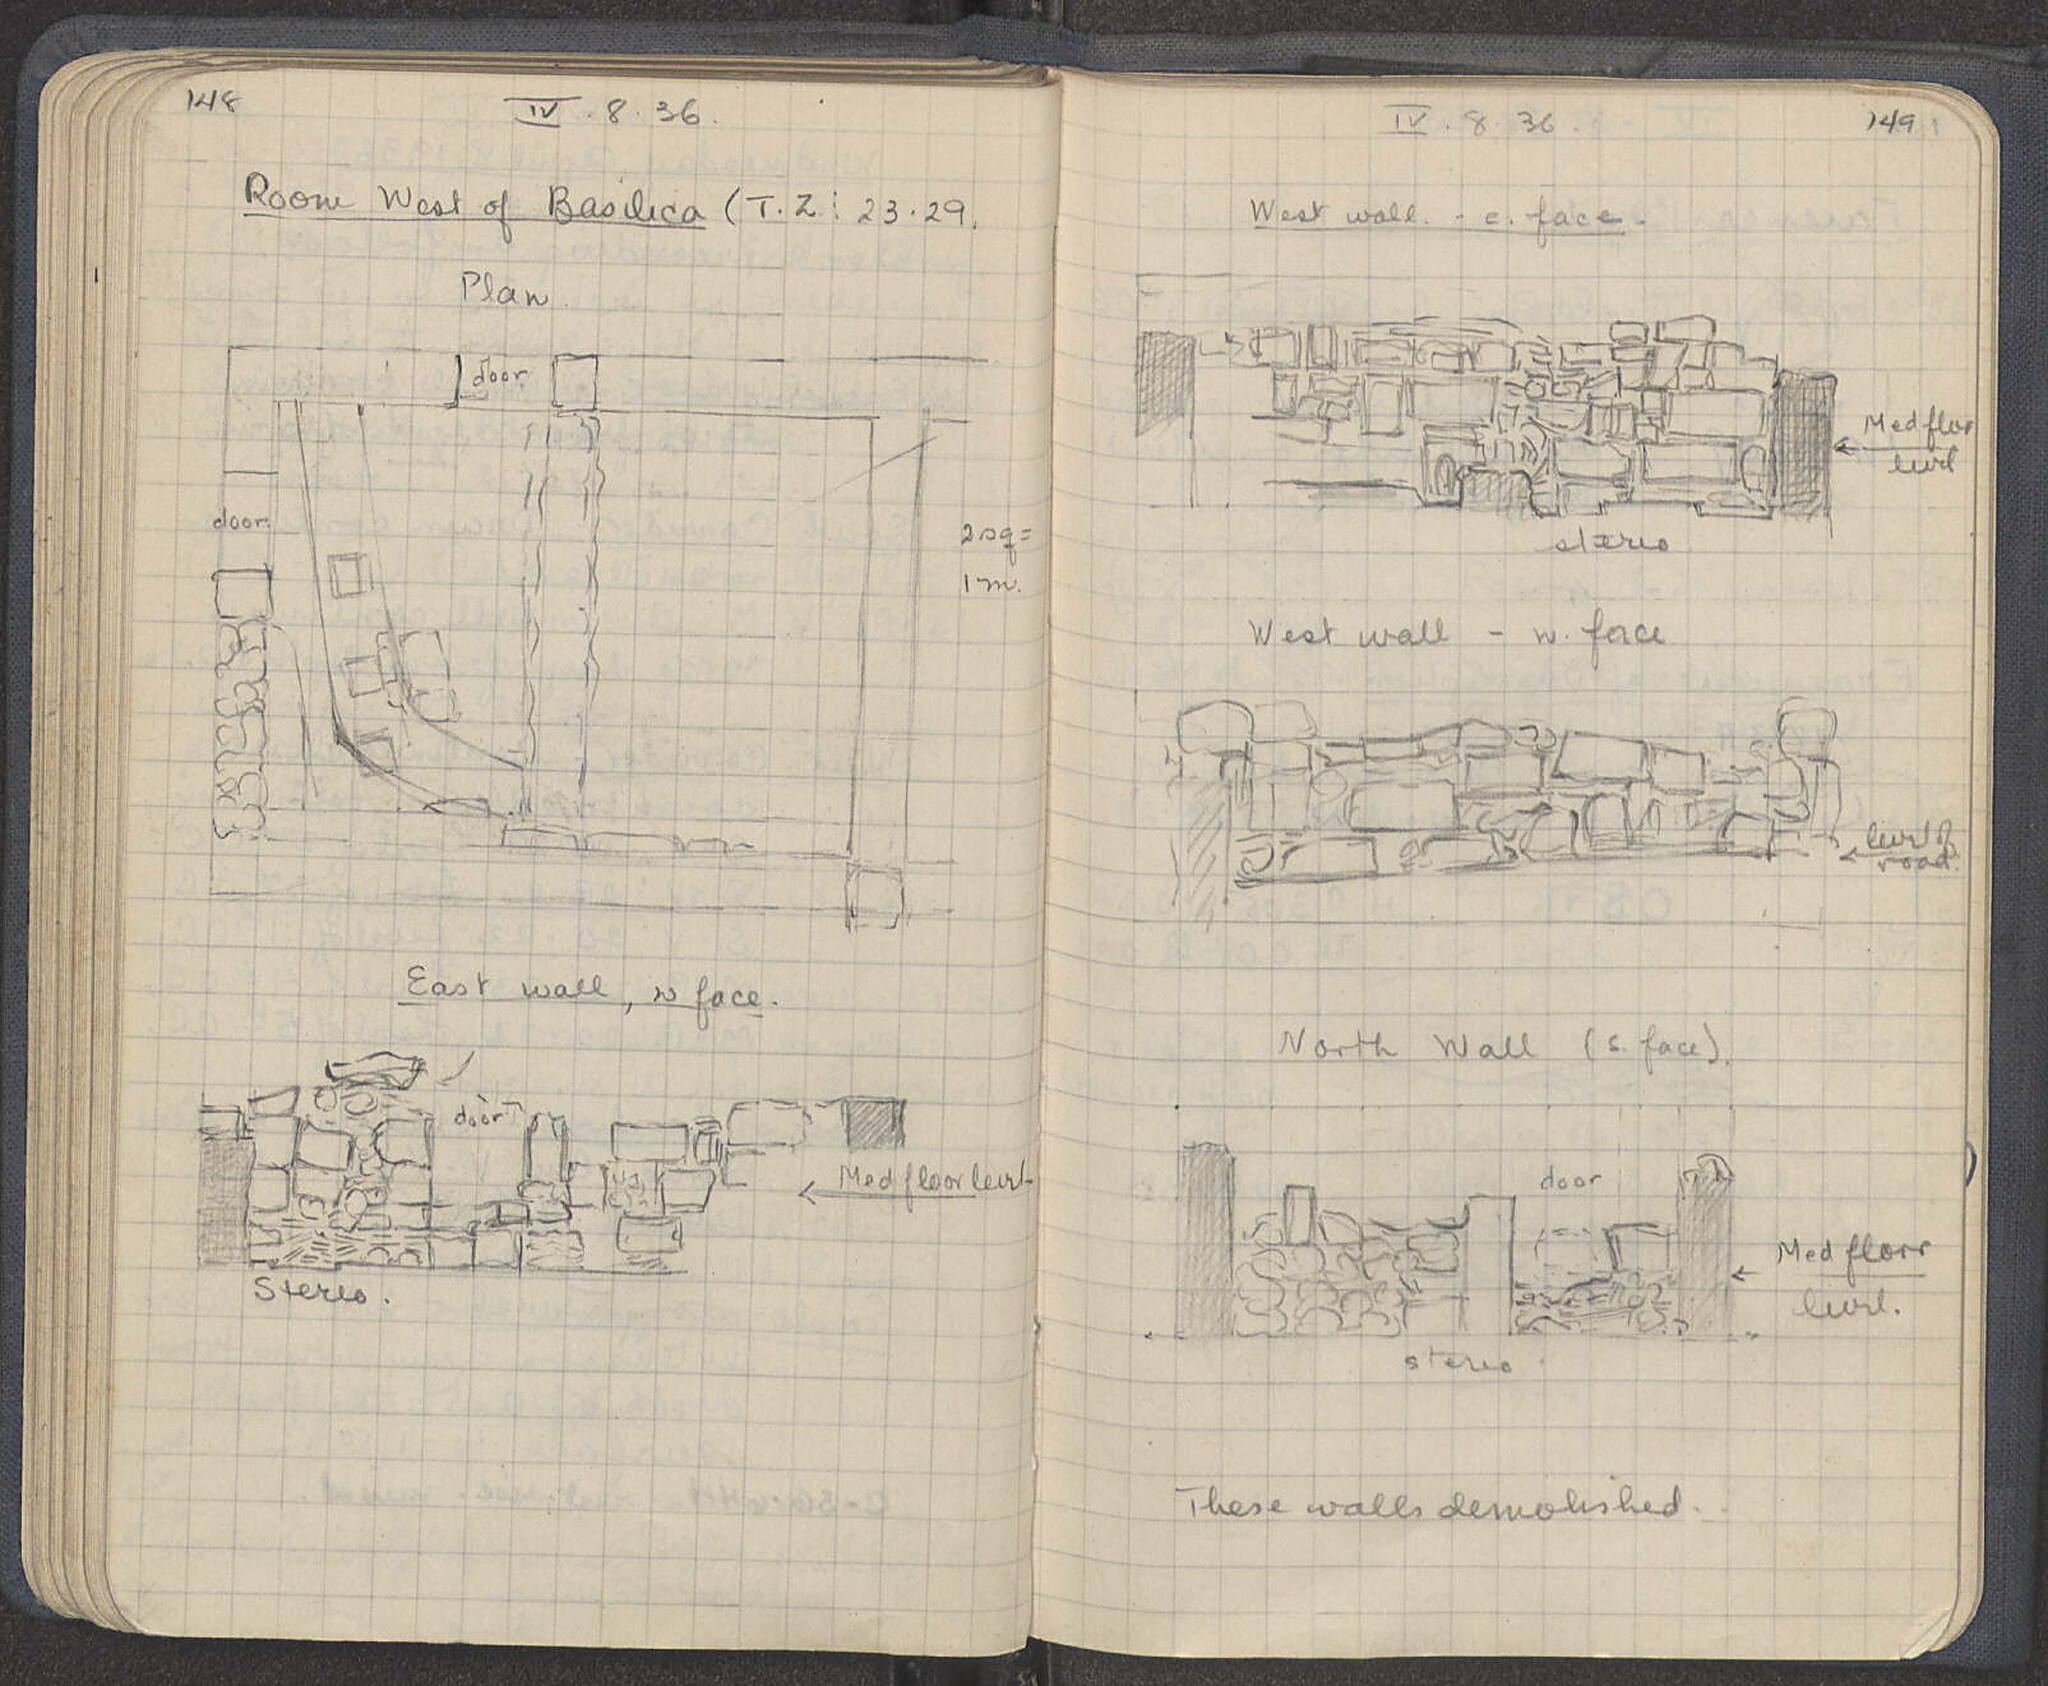 148
IV . 8 . 36 .
Room West of Basilica (T.Z : 23.29.
Plan.
door
door
2 sq =
1 m.
East wall, w face.
door
Med floor level
Stereo.
IV . 8 36 .
149
West wall. - e. face.
Med floor
level
stereo
West wall - w. face
level of
road
North Wall (s. face).
door
Med floor
level.
stereo
These walls demolished.